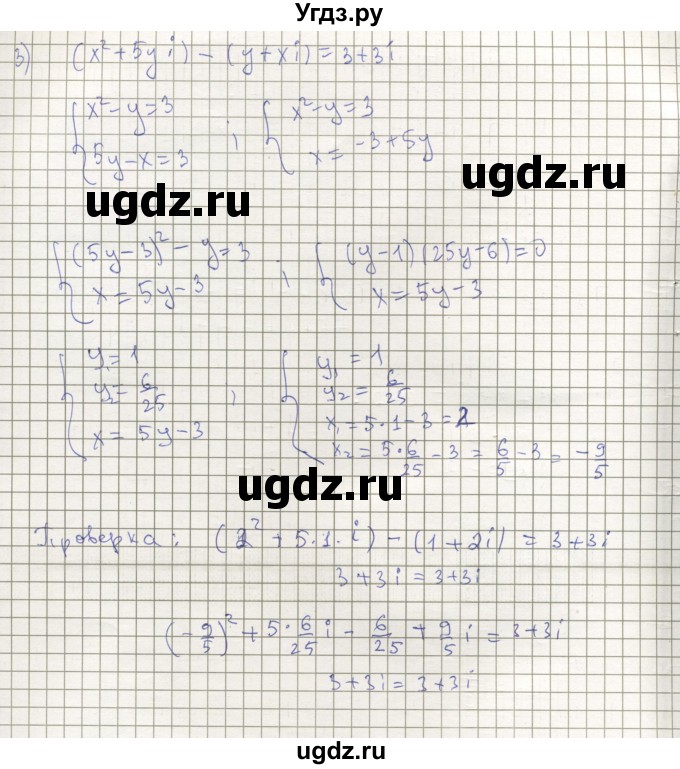 Угдз.ру
3) (x² + 5y i) − (y + xi) = 3 + 3i
{ x² − y = 3 ; { x² − y = 3
{ 5y − x = 3 { x = −3 + 5y
ugdz.ru ugdz.ru
{ (5y − 3)² − y = 3 ; { (y − 1)(25y − 6) = 0
{ x = 5y − 3 { x = 5y − 3
{ y₁ = 1 ; { y₁ = 1
{ y₂ = 6/25 { y₂ = 6/25
{ x = 5y − 3 { x₁ = 5·1 − 3 = 2
x₂ = 5·6/25 − 3 = 6/5 − 3 = −9/5
ugdz.ru
Проверка: (2² + 5·1·i) − (1 + 2i) = 3 + 3i
3 + 3i = 3 + 3i
(−9/5)² + 5·6/25 i − 6/25 + 9/5 i = 3 + 3i
3 + 3i = 3 + 3i
ugdz.ru